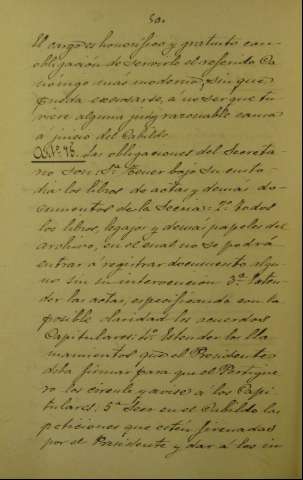 50.
El cargo es honorífico y gratuito con
obligación de servirlo el referido Ca
nónigo más moderno, sin que
pueda escusarse, á no ser que tu
viere alguna muy razonable causa
á juicio del Cabildo.
Art.º 45. Las obligaciones del Secreta
rio son: 1ª Tener bajo su custo
dia los libros de actas y demás do
cumentos de la Secria: 2ª todos
los libros, legajos y demás papeles del
archivo, en el cual no se podrá
entrar á registrar documento algu
no sin su intervención 3ª Esten
der las actas, especificando con la
posible claridad los acuerdos
Capitulares: 4ª Estender los lla
mamientos que el Presidente
deba firmar para que el Pertigue
ro los circule y avise á los Capi
tulares. 5ª Leer en el Cabildo las
peticiones que estén firmadas
por el Presidente y dar á los in